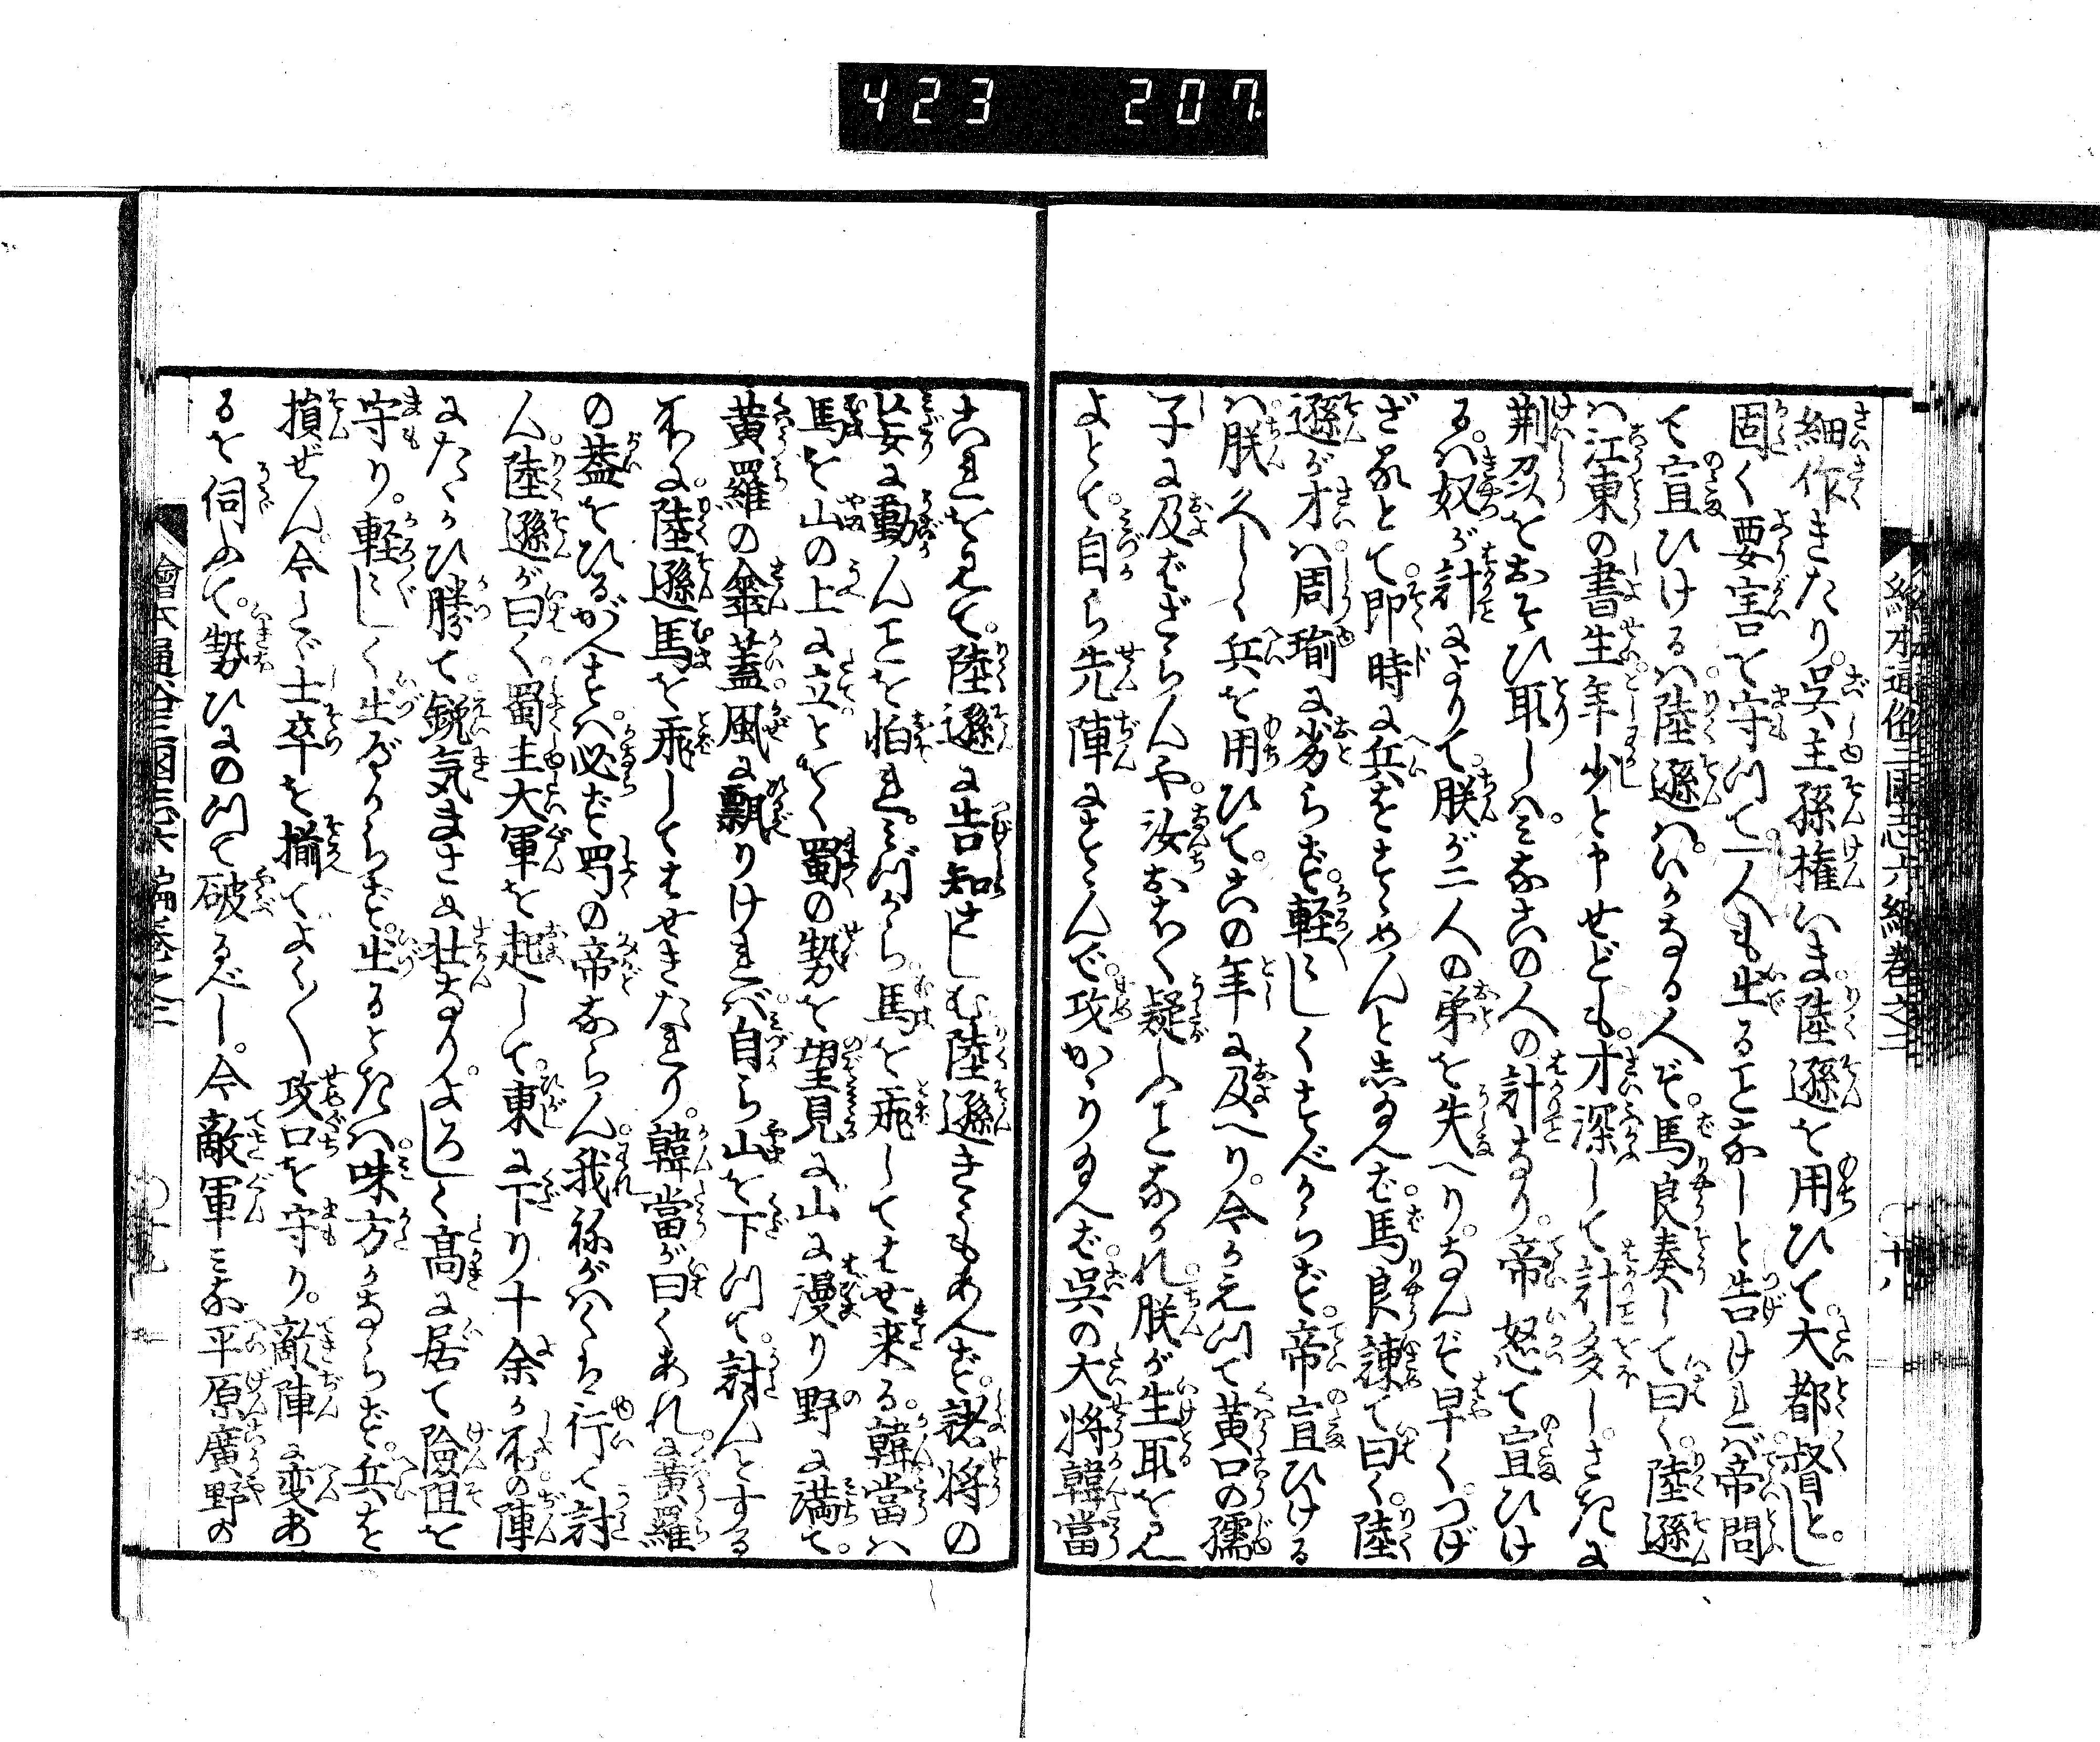 423 207.
繪本通俗三國志六編巻之二 〇十八
細作きたり。呉主孫権いま陸遜を用ひて。大都督とし。
固く要害を守つて。一人も出ることなしと告けれバ。帝問
て宣ひけるハ。陸遜ハ。いかなる人ぞ。馬良奏して曰く。陸遜
ハ江東の書生。年少しと申せども。才深して計多し。さきに
荊州をおそひ取しハ。みなこの人の計なり。帝怒て宣ひけ
るハ。奴が計によりて。朕が二人の弟を失へり。なんぞ早くつげ
ざるとて。即時に兵をすゝめんとし給へば。馬良諌て曰く。陸
遜が才ハ。周瑜に劣らず。軽〳〵しくすべからず。帝宣ひける
ハ。朕久しく兵を用ひて。この年に及べり。今かえつて黄口の孺
子に及ばざらんや。汝おほく疑ふことなかれ。朕が生取を見
よとて。自ら先陣にすゝんで。攻かゝり給へば。呉の大将韓當
これを見て。陸遜に告知せしむ。陸遜きゝもあへず。諸将の
妄に動んことを怕れ。みづから馬を飛してはせ来る。韓當ハ
馬を山の上に立とゞく蜀の勢を望見に山に漫り野に満て。
黄羅の傘蓋。風に飄りけれバ。自ら山を下つて。討んとする
所に。陸遜馬を飛してはせきたれり。韓當が曰くあれに黄羅
の蓋をひるがへすハ。必ず蜀の帝ならん。我ねがハくは行て討
ん。陸遜が曰く。蜀主大軍を起して。東に下り十余か所の陣
にたゝかひ勝て。鋭気まさに壮なり。よろしく高に居て險阻を
守り。軽〳〵しく出べからず。出るときハ。味方かならず。兵を
損ぜん。今たゞ士卒を揃てよく〳〵攻口を守り。敵陣に変あ
るを伺ふて。勢ひにのつて破るべし。今敵軍みな平原廣野の
繪本通俗三國志六編巻之二 〇十九